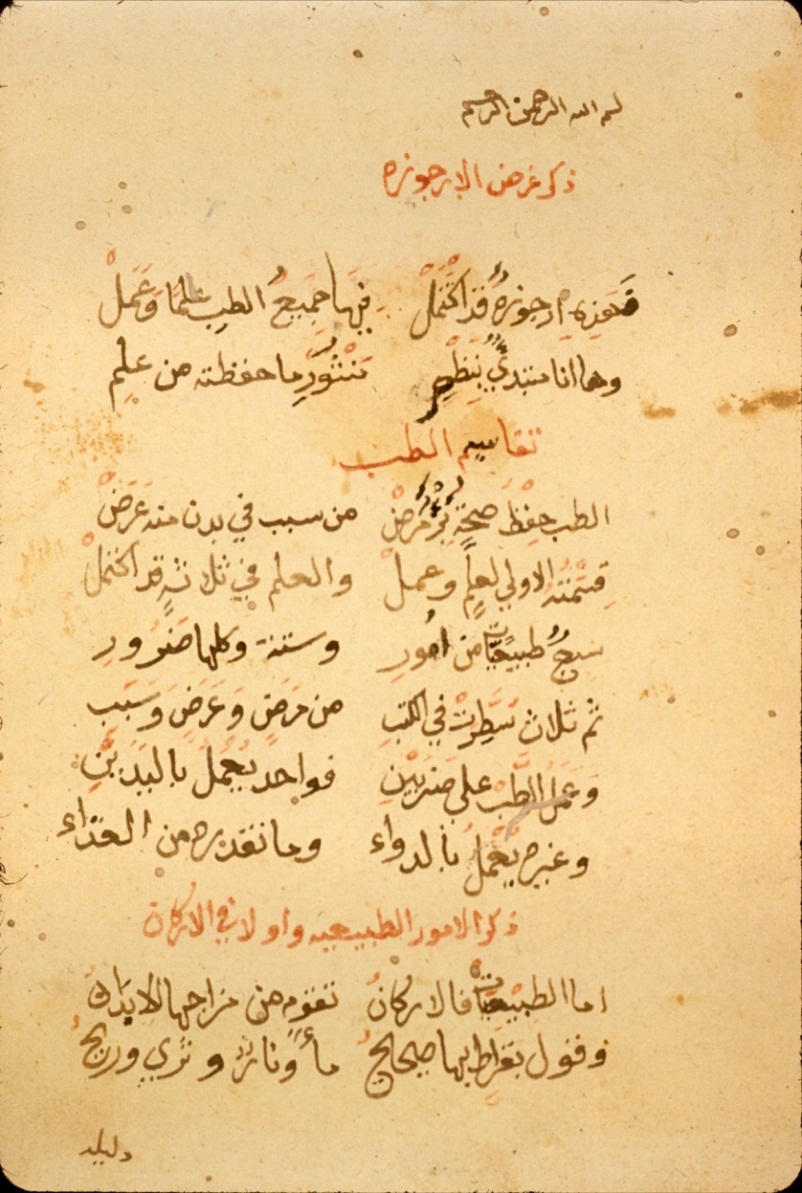 بسم الله الرحمن الرحيم
ذكر غرض الارجوزه
فهذه ارجوزةٌ قد اكْتَمَلْ فيها جَمِيعُ الطبِ علمًا وَعَمَلْ
وها انا مبتدئٌ بنظم مَنْثُورِ ما حفظته من عِلمِ
تقاسيم الطب
الطب حِفْظُ صحةٍ بُرْءُ مَرَضْ من سبب في بدن منه عَرَضْ
قِسْمَتُهُ الاولي لعِلمٍ وعملْ والعلم في ثلاثةٍ قد اكتملْ
سبعُ طبيعيّات من امُورِ وستة وكلها ضرورِ
ثم ثلاث سُطِرَتْ في الكتبِ من مَرَضٍ وَعَرَضَ وَسَبَبِ
وَعَمَلُ الطبِّ على ضربَيْنِ فواحدٌ يُعْمَلُ باليَدَيْنِ
وغيره يُعْمَلُ بالدواء وما نقدره من الغذاء
ذكر الامور الطبيعيه واولا في الاركان
اما الطبيعيّات فالاركانُ تقوم من مزاجها الابدانُ
وقول بقراط بها صحيحُ ماءٌ ونارٌ وثري وريحُ
دليله